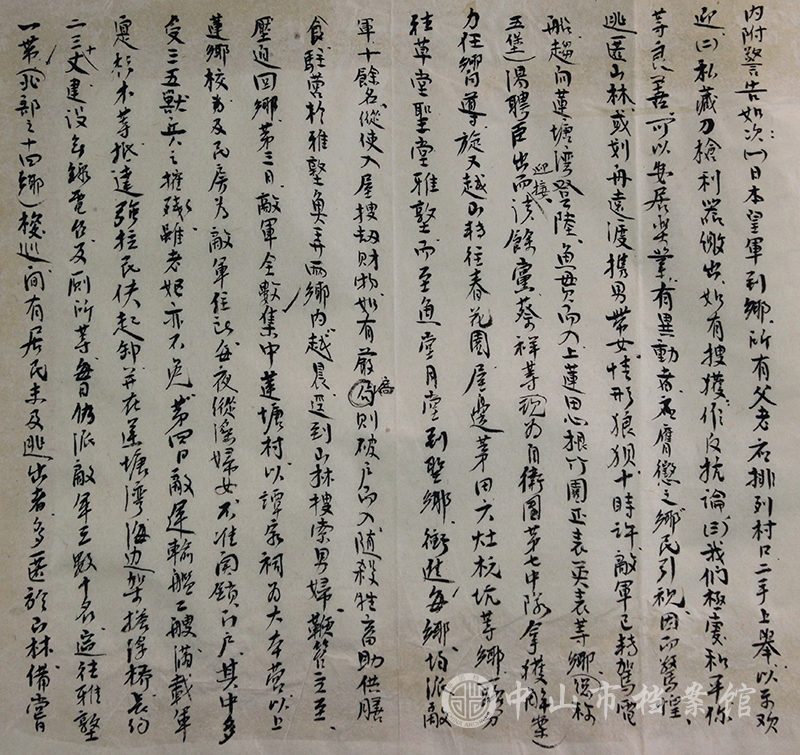 内附警告如次：㈠日本皇軍到鄉，所有父老名排列村口二手上舉，以示欢
迎㈡私藏刀槍利器缴出，如有搜獲作反抗論㈢我們極愛和平，你
等良善可以安居樂業，有異動者
膺懲之，鄉民引視，因而驚惶，
逃匿山林，或划舟遠渡，携男带女，情形狼狽，十時許，敵軍已轉駕電
船趨向蓮塘灣登陸，魚貫而入上蓮田心根竹園正表吴表等鄉（总称
五堡）湯聘臣出而
迎接
餘黨蔡祥等（現为自衛團第七中隊拿獲解案）
力任鄉導，旋又越山轉往春花園屋邊茅田六灶杭坑等鄉，一部分
往草堂聖堂雅墊而至魚堂月堂到墅鄉，衝進每鄉均派敵
軍十餘名，縱使入屋搜劫财物，如有嚴
窗
則破戶而入，隨殺牲畜助供膳
食，駐營於雅墊奥弄两鄉内，越晨逕到山林搜索男婦，鞭笞立至，
壓迫回鄉，第三日敵軍全數集中蓮塘村，以譚家祠为大本营，以上
蓮鄉校为及民房为敵軍住所，每夜縱淫婦女，不准関鎖门戶，其中多
受三五獸兵之摧殘，雖老妪亦不免，第四日敵運輸艦二艘满載軍
实杉木等抵達，強拉民伕起卸，并在蓮塘灣海边架搭浮橋長约
二三
十
丈，建設有線電台及厠所等，每日仍派敵軍三數十名巡往雅墊
一带（北部之十四鄉）梭巡，间有居民未及逃出者，多匿於山林，備嘗
中山市档案馆